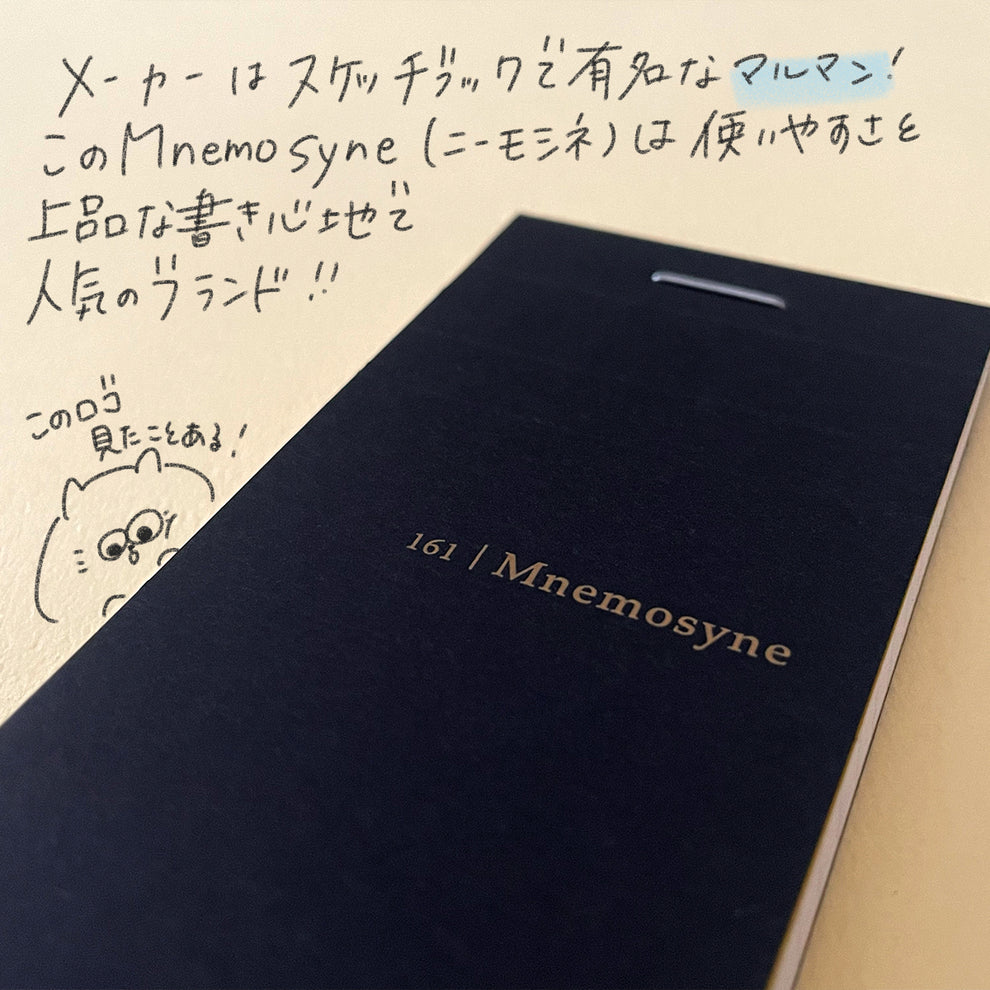 メーカーはスケッチブックで有名なマルマン!
このMnemosyne(ニーモシネ)は使いやすさと
上品な書き心地で
人気のブランド!!
このロゴ
見たことある!
161 | Mnemosyne